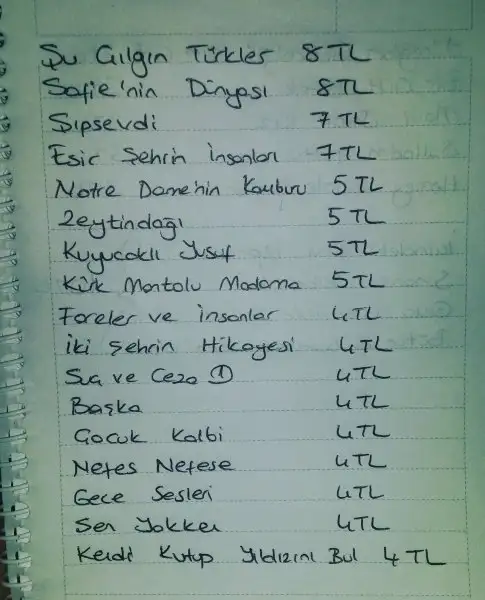 Şu Çılgın Türkler 8 TL
Sofie'nin Dünyası 8 TL
Şıpsevdi 7 TL
Esir Şehrin İnsanları 7 TL
Notre Dame'nin Kamburu 5 TL
Zeytindağı 5 TL
Kuyucaklı Yusuf 5 TL
Kürk Mantolu Madonna 5 TL
Fareler ve insanlar 4 TL
iki şehrin Hikayesi 4 TL
Suç ve Ceza ① 4 TL
Başka 4 TL
Çocuk Kalbi 4 TL
Nefes Nefese 4 TL
Gece Sesleri 4 TL
Sen Yokken 4 TL
Kendi Kutup Yıldızını Bul 4 TL